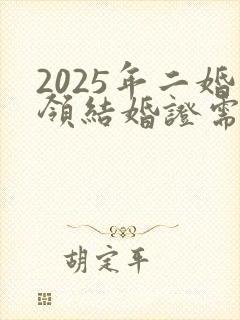 2025年二婚
領結婚證需
胡定平